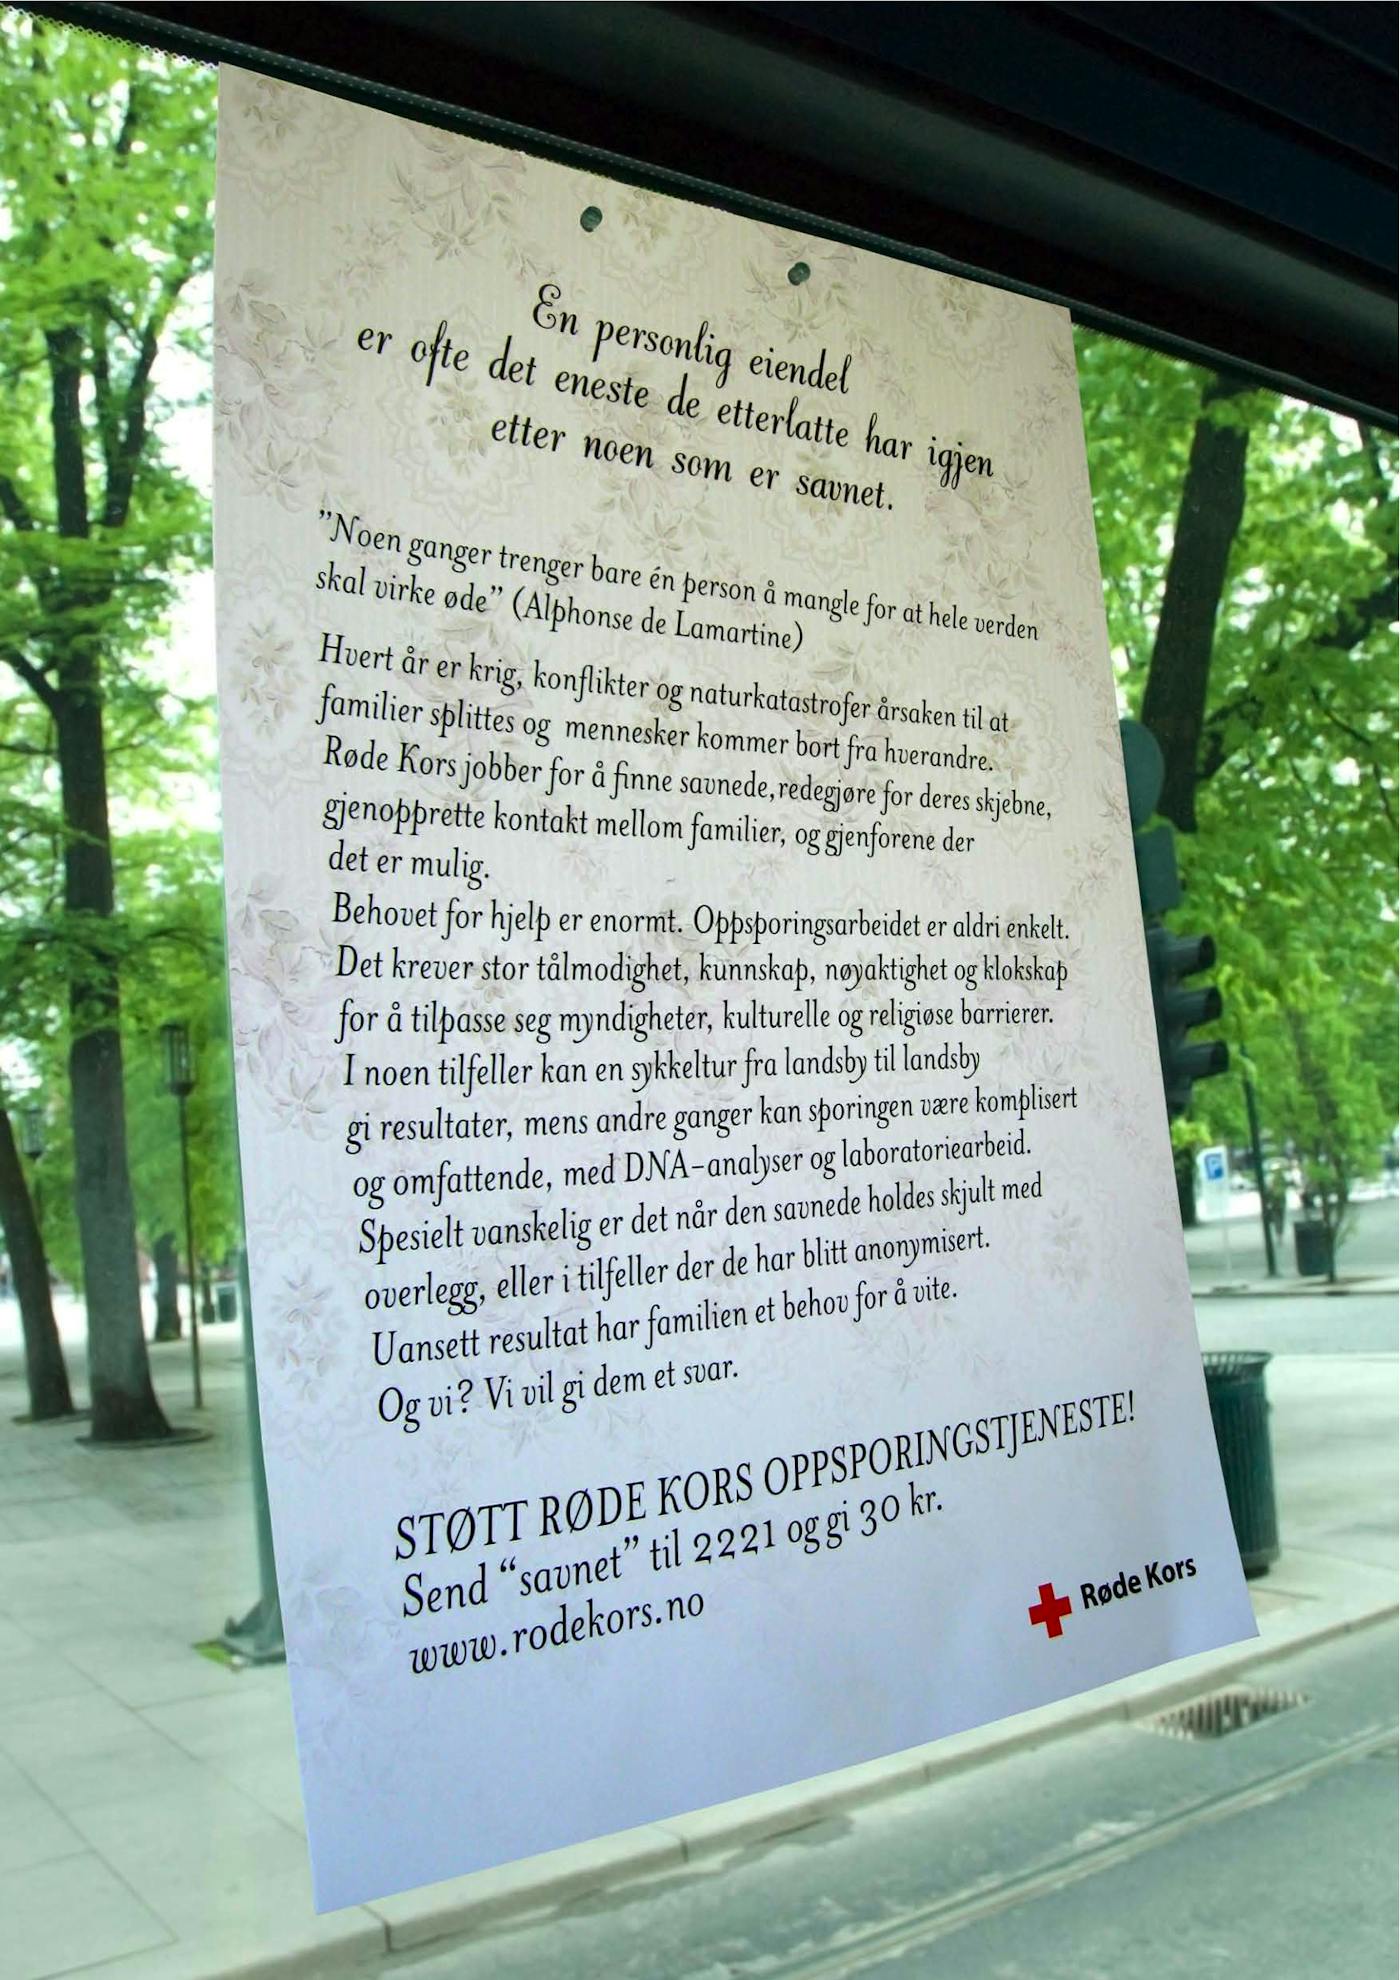 En personlig eiendel
er ofte det eneste de etterlatte har igjen
etter noen som er savnet.
”Noen ganger trenger bare én person å mangle for at hele verden
skal virke øde” (Alphonse de Lamartine)
Hvert år er krig, konflikter og naturkatastrofer årsaken til at
familier splittes og mennesker kommer bort fra hverandre.
Røde Kors jobber for å finne savnede, redegjøre for deres skjebne,
gjenopprette kontakt mellom familier, og gjenforene der
det er mulig.
Behovet for hjelp er enormt. Oppsporingsarbeidet er aldri enkelt.
Det krever stor tålmodighet, kunnskap, nøyaktighet og klokskap
for å tilpasse seg myndigheter, kulturelle og religiøse barrierer.
I noen tilfeller kan en sykkeltur fra landsby til landsby
gi resultater, mens andre ganger kan sporingen være komplisert
og omfattende, med DNA-analyser og laboratoriearbeid.
Spesielt vanskelig er det når den savnede holdes skjult med
overlegg, eller i tilfeller der de har blitt anonymisert.
Uansett resultat har familien et behov for å vite.
Og vi? Vi vil gi dem et svar.
STØTT RØDE KORS OPPSPORINGSTJENESTE!
Send “savnet” til 2221 og gi 30 kr.
www.rodekors.no
Røde Kors
P